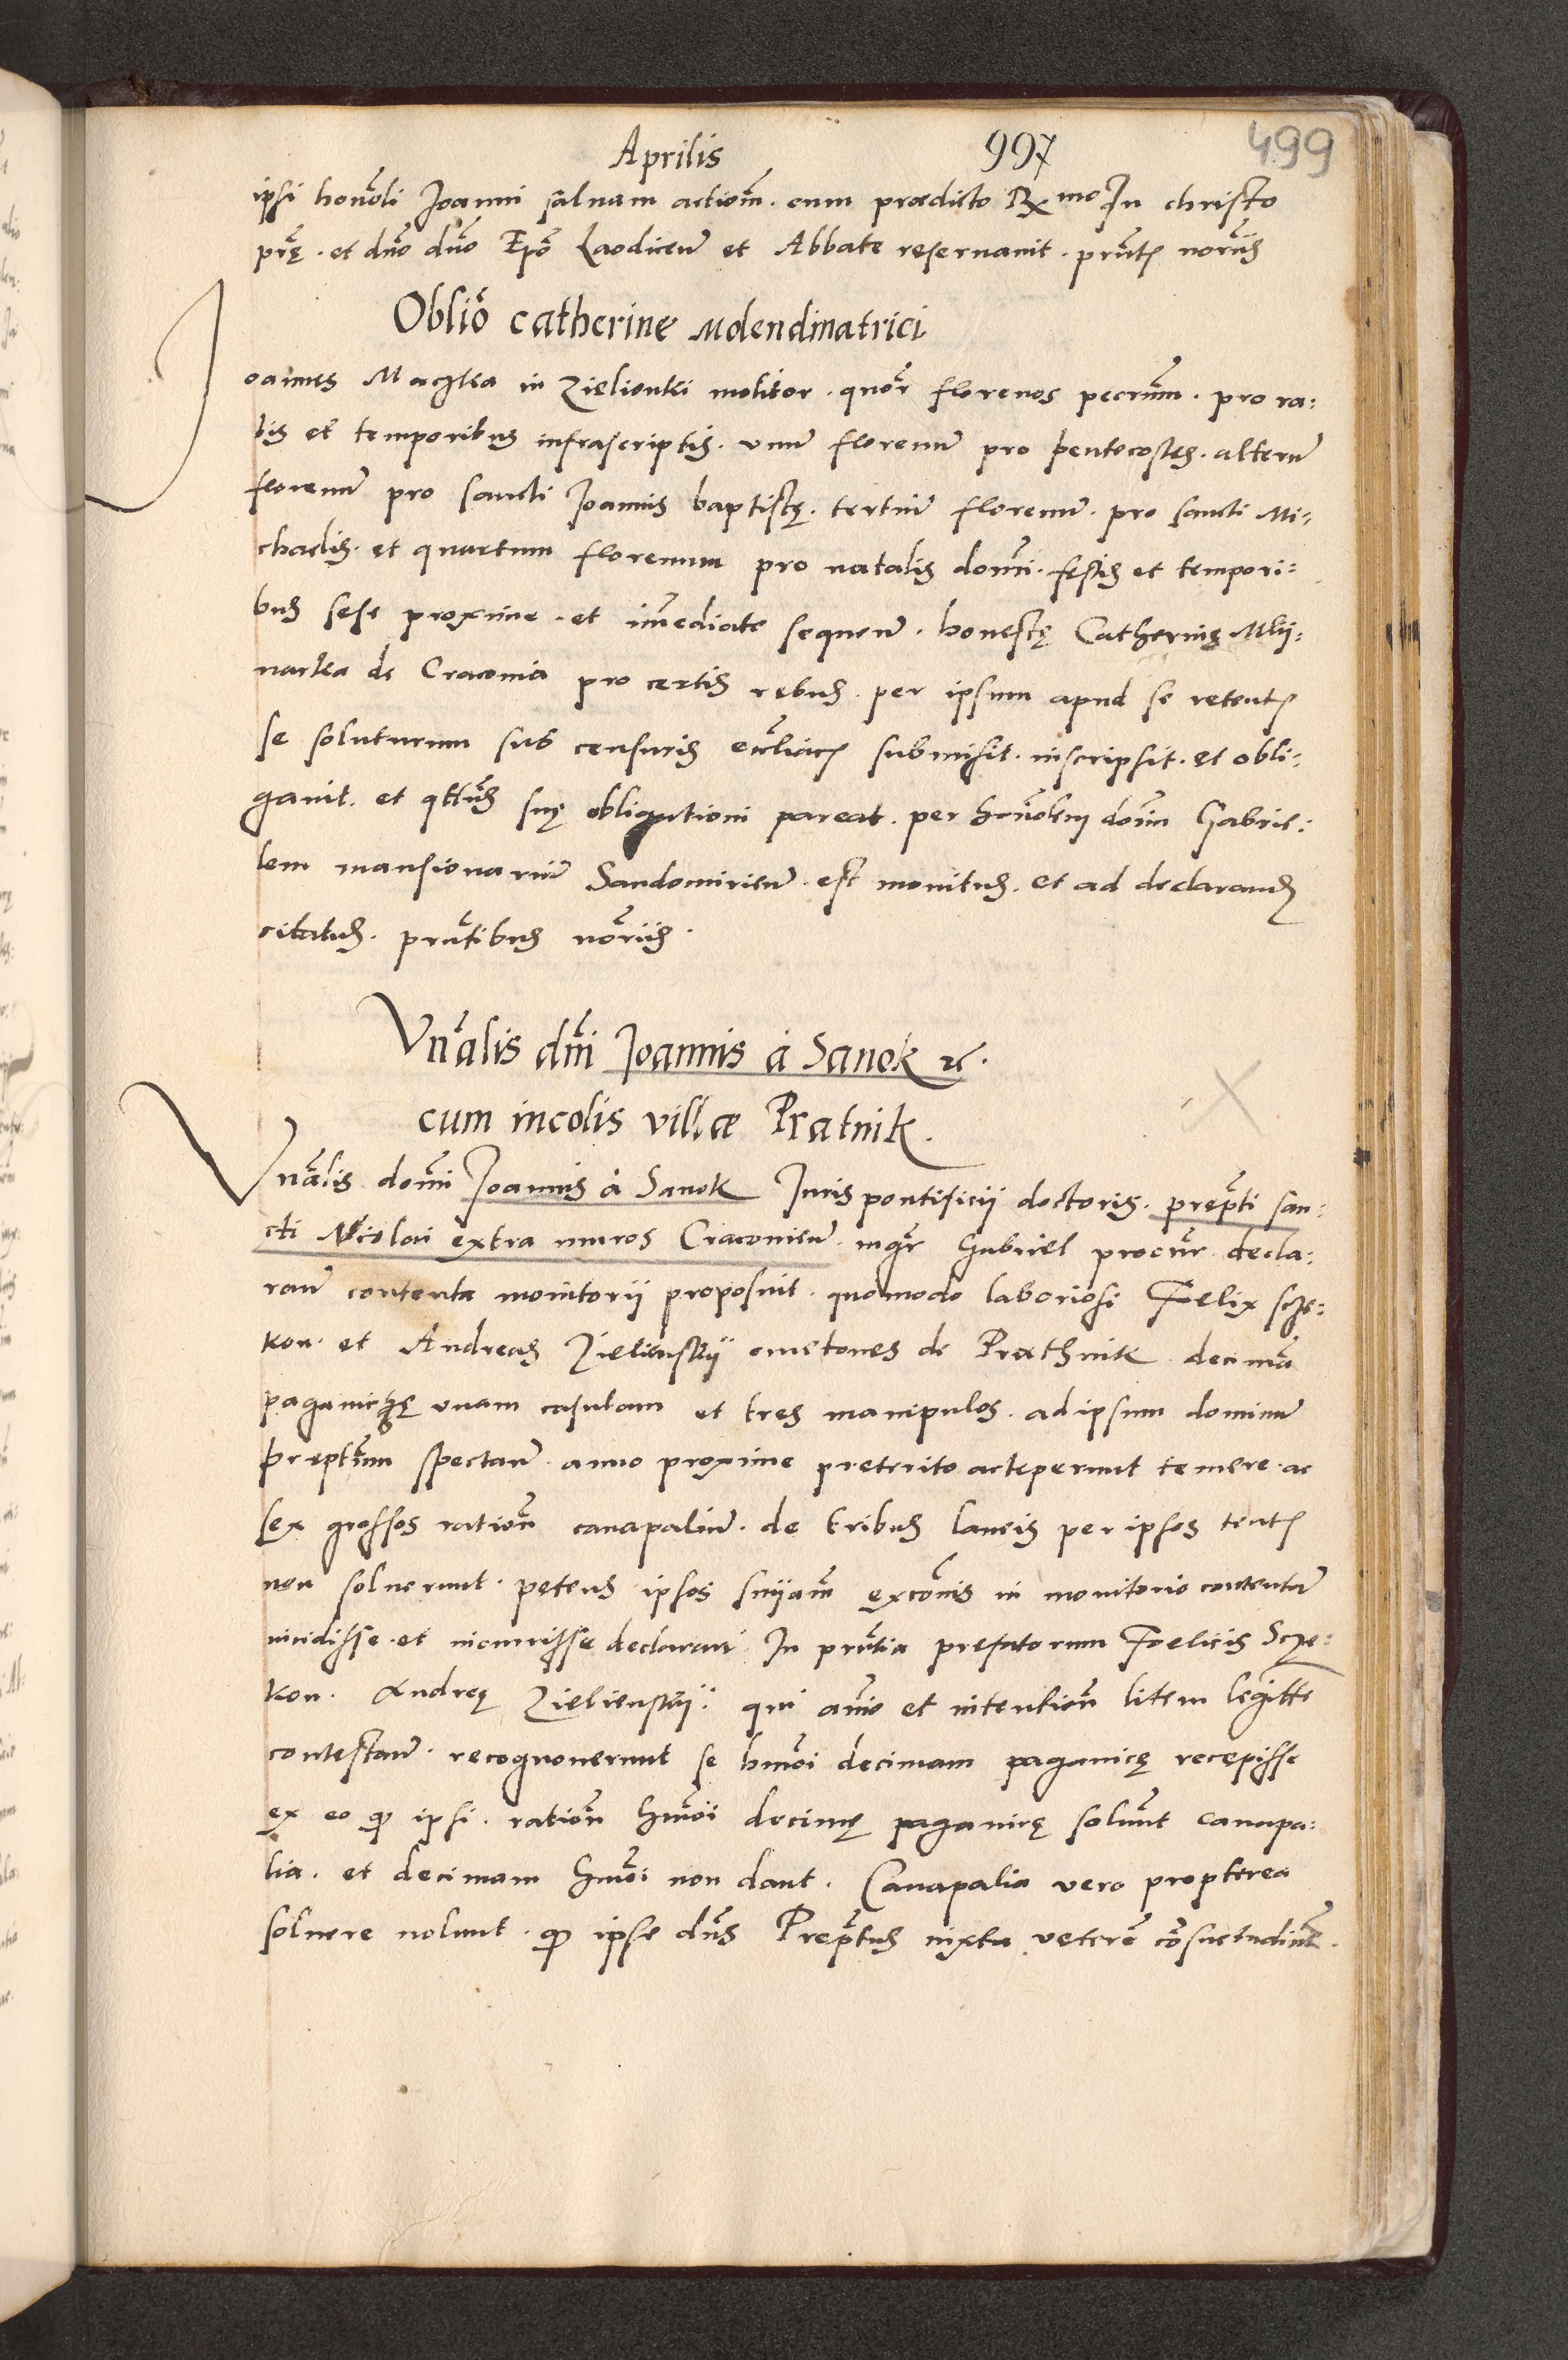 Aprilis 997 499
ipsi honoli Joanni saluam actiom. cum prædicto Rxmo In christo
prę. et dno dno Epo Laodicen et Abbate reseruauit. prntℓ norijs
Oblio catherinę Molendinatrici
Joannes Maczka in Zielionki molitor. quor florenos pecrum. pro ra:
tis et temporibus infrascriptis. vnum florenum pro pentecostes. alterum
florenum pro sancti Joannis baptistę. tertium florenum. pro sancti Mi:
chaelis. et quartum florenum pro natalis domi. festis et tempori:
bus sese proxime. et imediate sequen. honestę Catherinę Mlij:
narka de Cracouia pro certis rebus. per ipsum apud se retentℓ
se soluturum sub censuris eccliacℓ submisit. inscripsit. et obli:
gauit. et qttus suę obligationi pareat. per honolem dom Gabrie:
lem mansionarium Sandomirien. est monitus. et ad declarandℓ
citatus. prntibus norijs.
Vnalis dni Joannis à Sanok rc.
cum incolis villæ Pratnik.
Vnalis domi Joannis à Sanok Juris pontificii doctoris. prepti san:
cti Nicolai extra muros Cracouien. mgr Gabriel procur decla:
ran contenta monitorii proposuit. quomodo laboriosi Fœlix scze:
kon. et Andreas Zielienskij cmetones de Prathnik decima
paganiczę vnam casulam et tres manipulos. ad ipsum dominum
preptum spectan. anno proxime preterito acceperunt temere. ac
sex grossos ration canapalium. de tribus laneis per ipsos tentℓ
non soluerunt. petens ipsos sniam excomis in monitorio contentam
incidisse. et incurrisse declarari. In prntia prefatorum Fœlicis Scze:
kon. Andreę Zielienskij. qui animo et intention litem legitte
contestan. recognouerunt se hmoi decimam paganicę recepisse
ex eo qp ipsi. ration hmoi decimę paganicę soluunt canapa:
lia. et decimam hmoi non dant. Canapalia vero propterea
soluere nolunt. qp ipse dns Preptus iuxta veterē cosuetudinē.